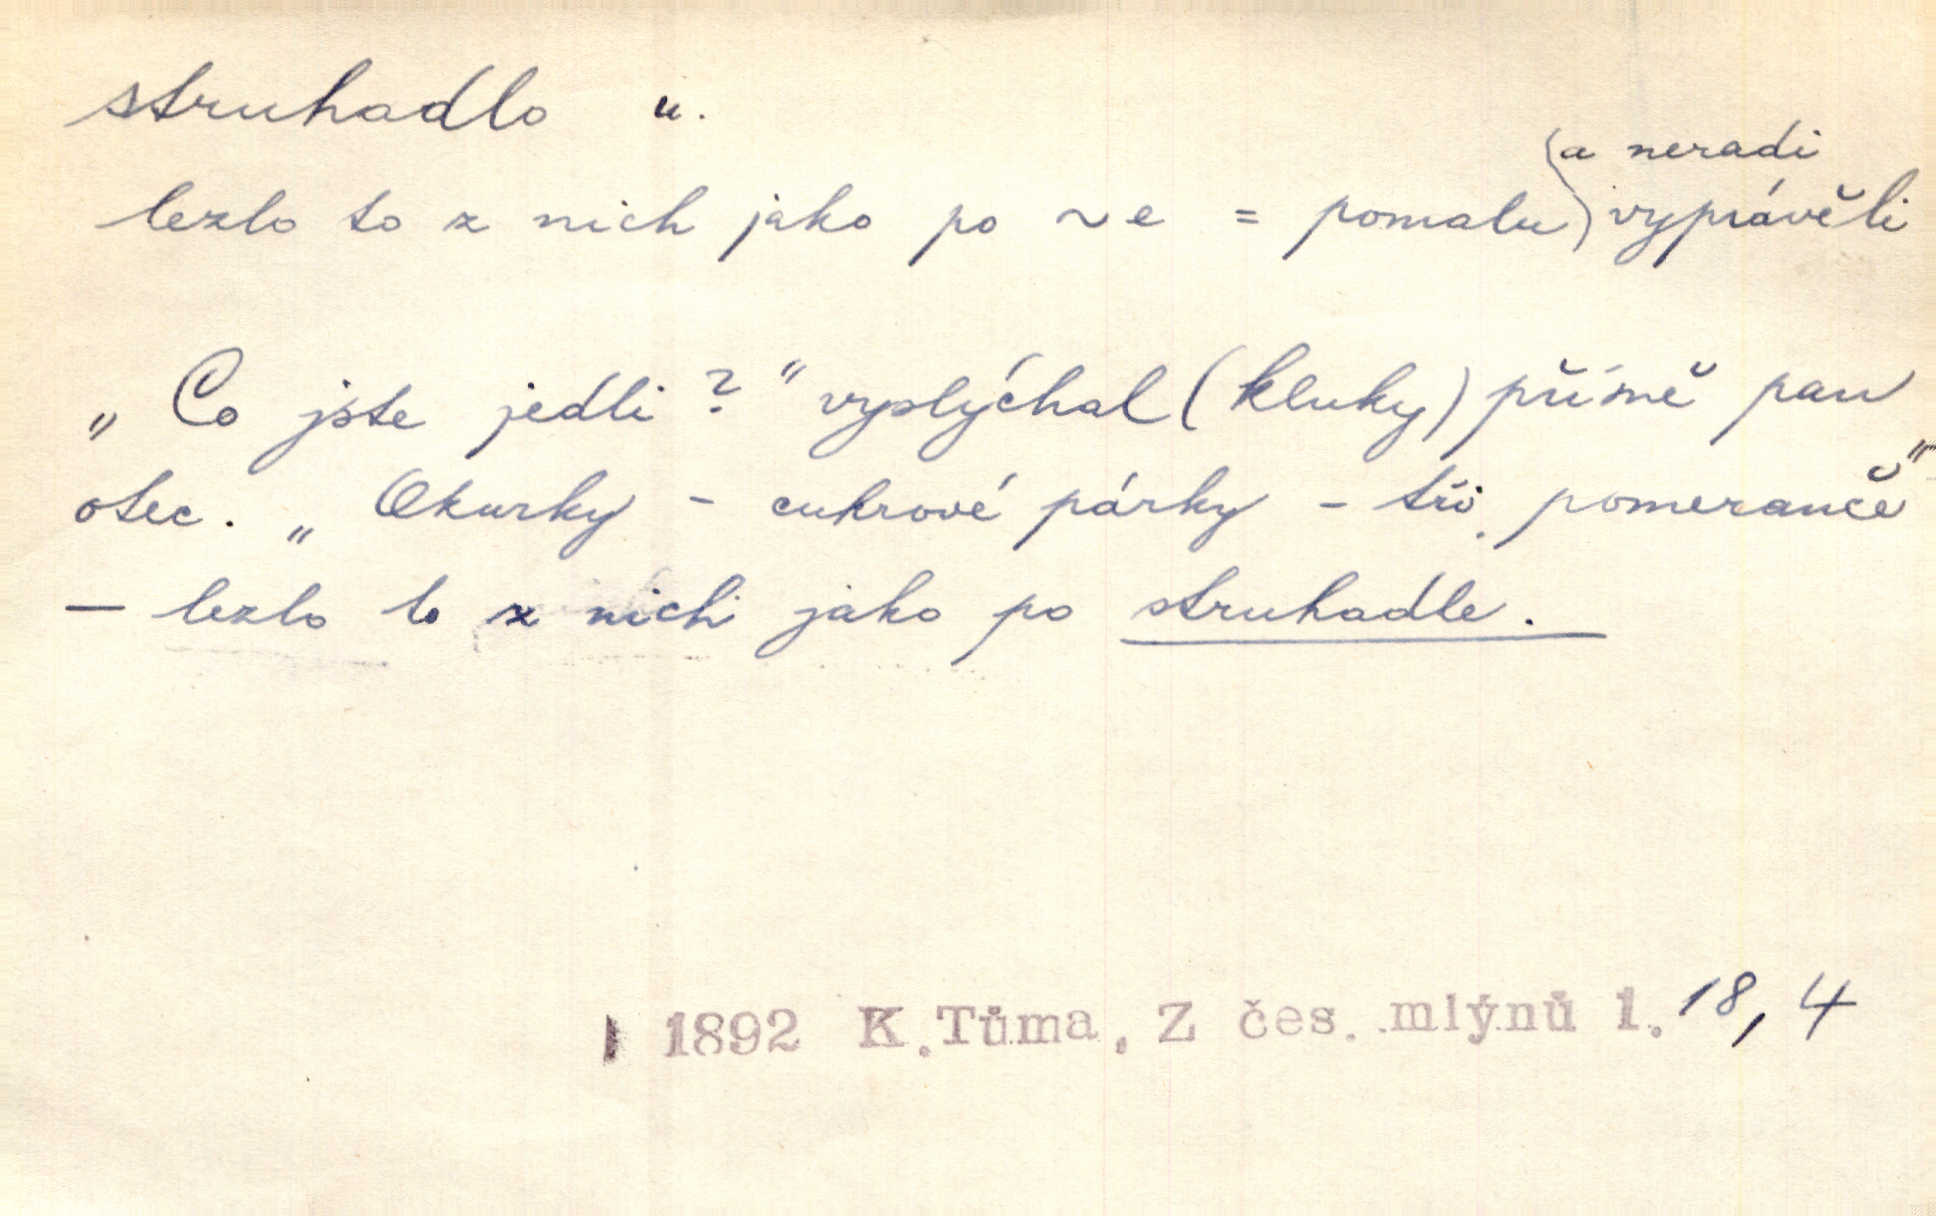 struhadlo n.
lezlo to z nich jako po ~e = pomalu (a neradi) vyprávěli
„Co jste jedli?" vyslýchal (kluky) přísně pan
otec. „Okurky – cukrové párky – tři pomeranče"
— lezlo to z nich jako po struhadle.
1892 K. Tůma, Z čes. mlýnů 1. 18, 4